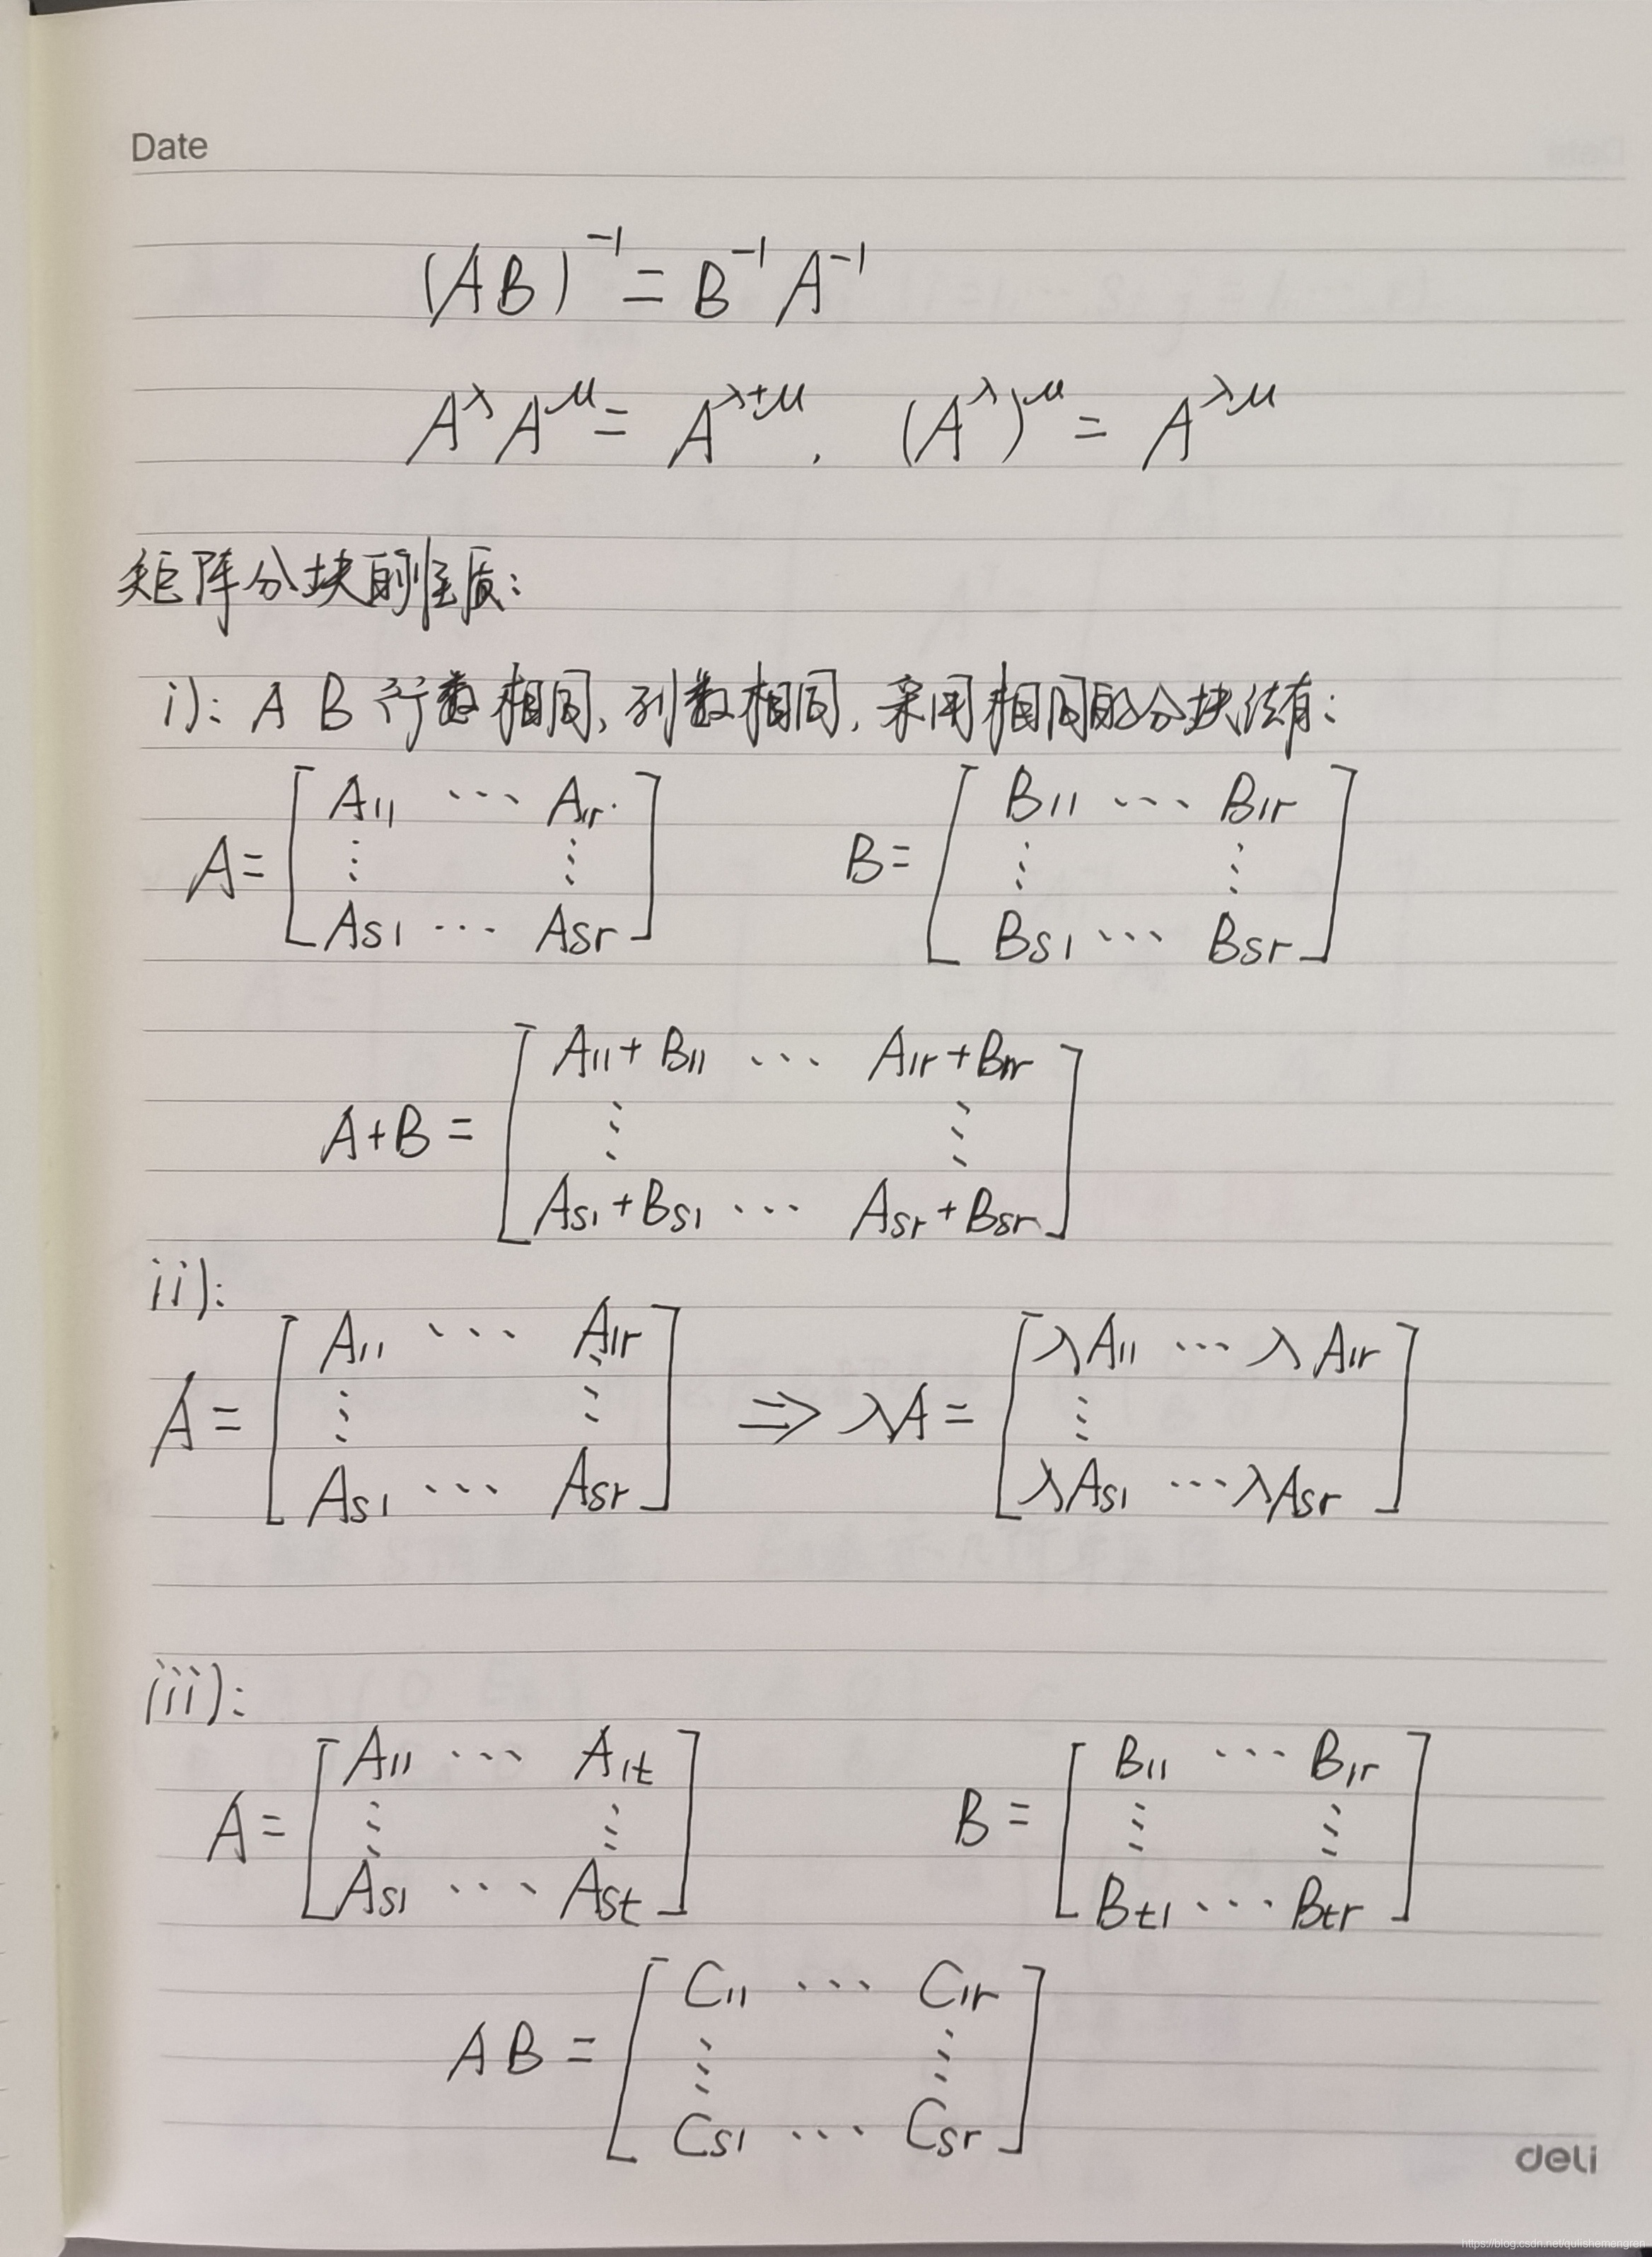 Date
(AB)⁻¹ = B⁻¹ A⁻¹
A^λ A^μ = A^{λ+μ}. (A^λ)^μ = A^{λμ}
矩阵分块的性质:
i): A B 行数相同, 列数相同, 采用相同的分块法有:
A = [ A₁₁ ··· A₁ᵣ ⋮ ⋮ Aₛ₁ ··· Aₛᵣ ] B = [ B₁₁ ··· B₁ᵣ ⋮ ⋮ Bₛ₁ ··· Bₛᵣ ]
A+B = [ A₁₁+B₁₁ ··· A₁ᵣ+B₁ᵣ ⋮ ⋮ Aₛ₁+Bₛ₁ ··· Aₛᵣ+Bₛᵣ ]
ii):
A = [ A₁₁ ··· A₁ᵣ ⋮ ⋮ Aₛ₁ ··· Aₛᵣ ] ⇒ λA = [ λA₁₁ ··· λA₁ᵣ ⋮ λAₛ₁ ··· λAₛᵣ ]
iii):
A = [ A₁₁ ··· A₁ₜ ⋮ ⋮ Aₛ₁ ··· Aₛₜ ] B = [ B₁₁ ··· B₁ᵣ ⋮ ⋮ Bₜ₁ ··· Bₜᵣ ]
AB = [ C₁₁ ··· C₁ᵣ ⋮ ⋮ Cₛ₁ ··· Cₛᵣ ]
deli